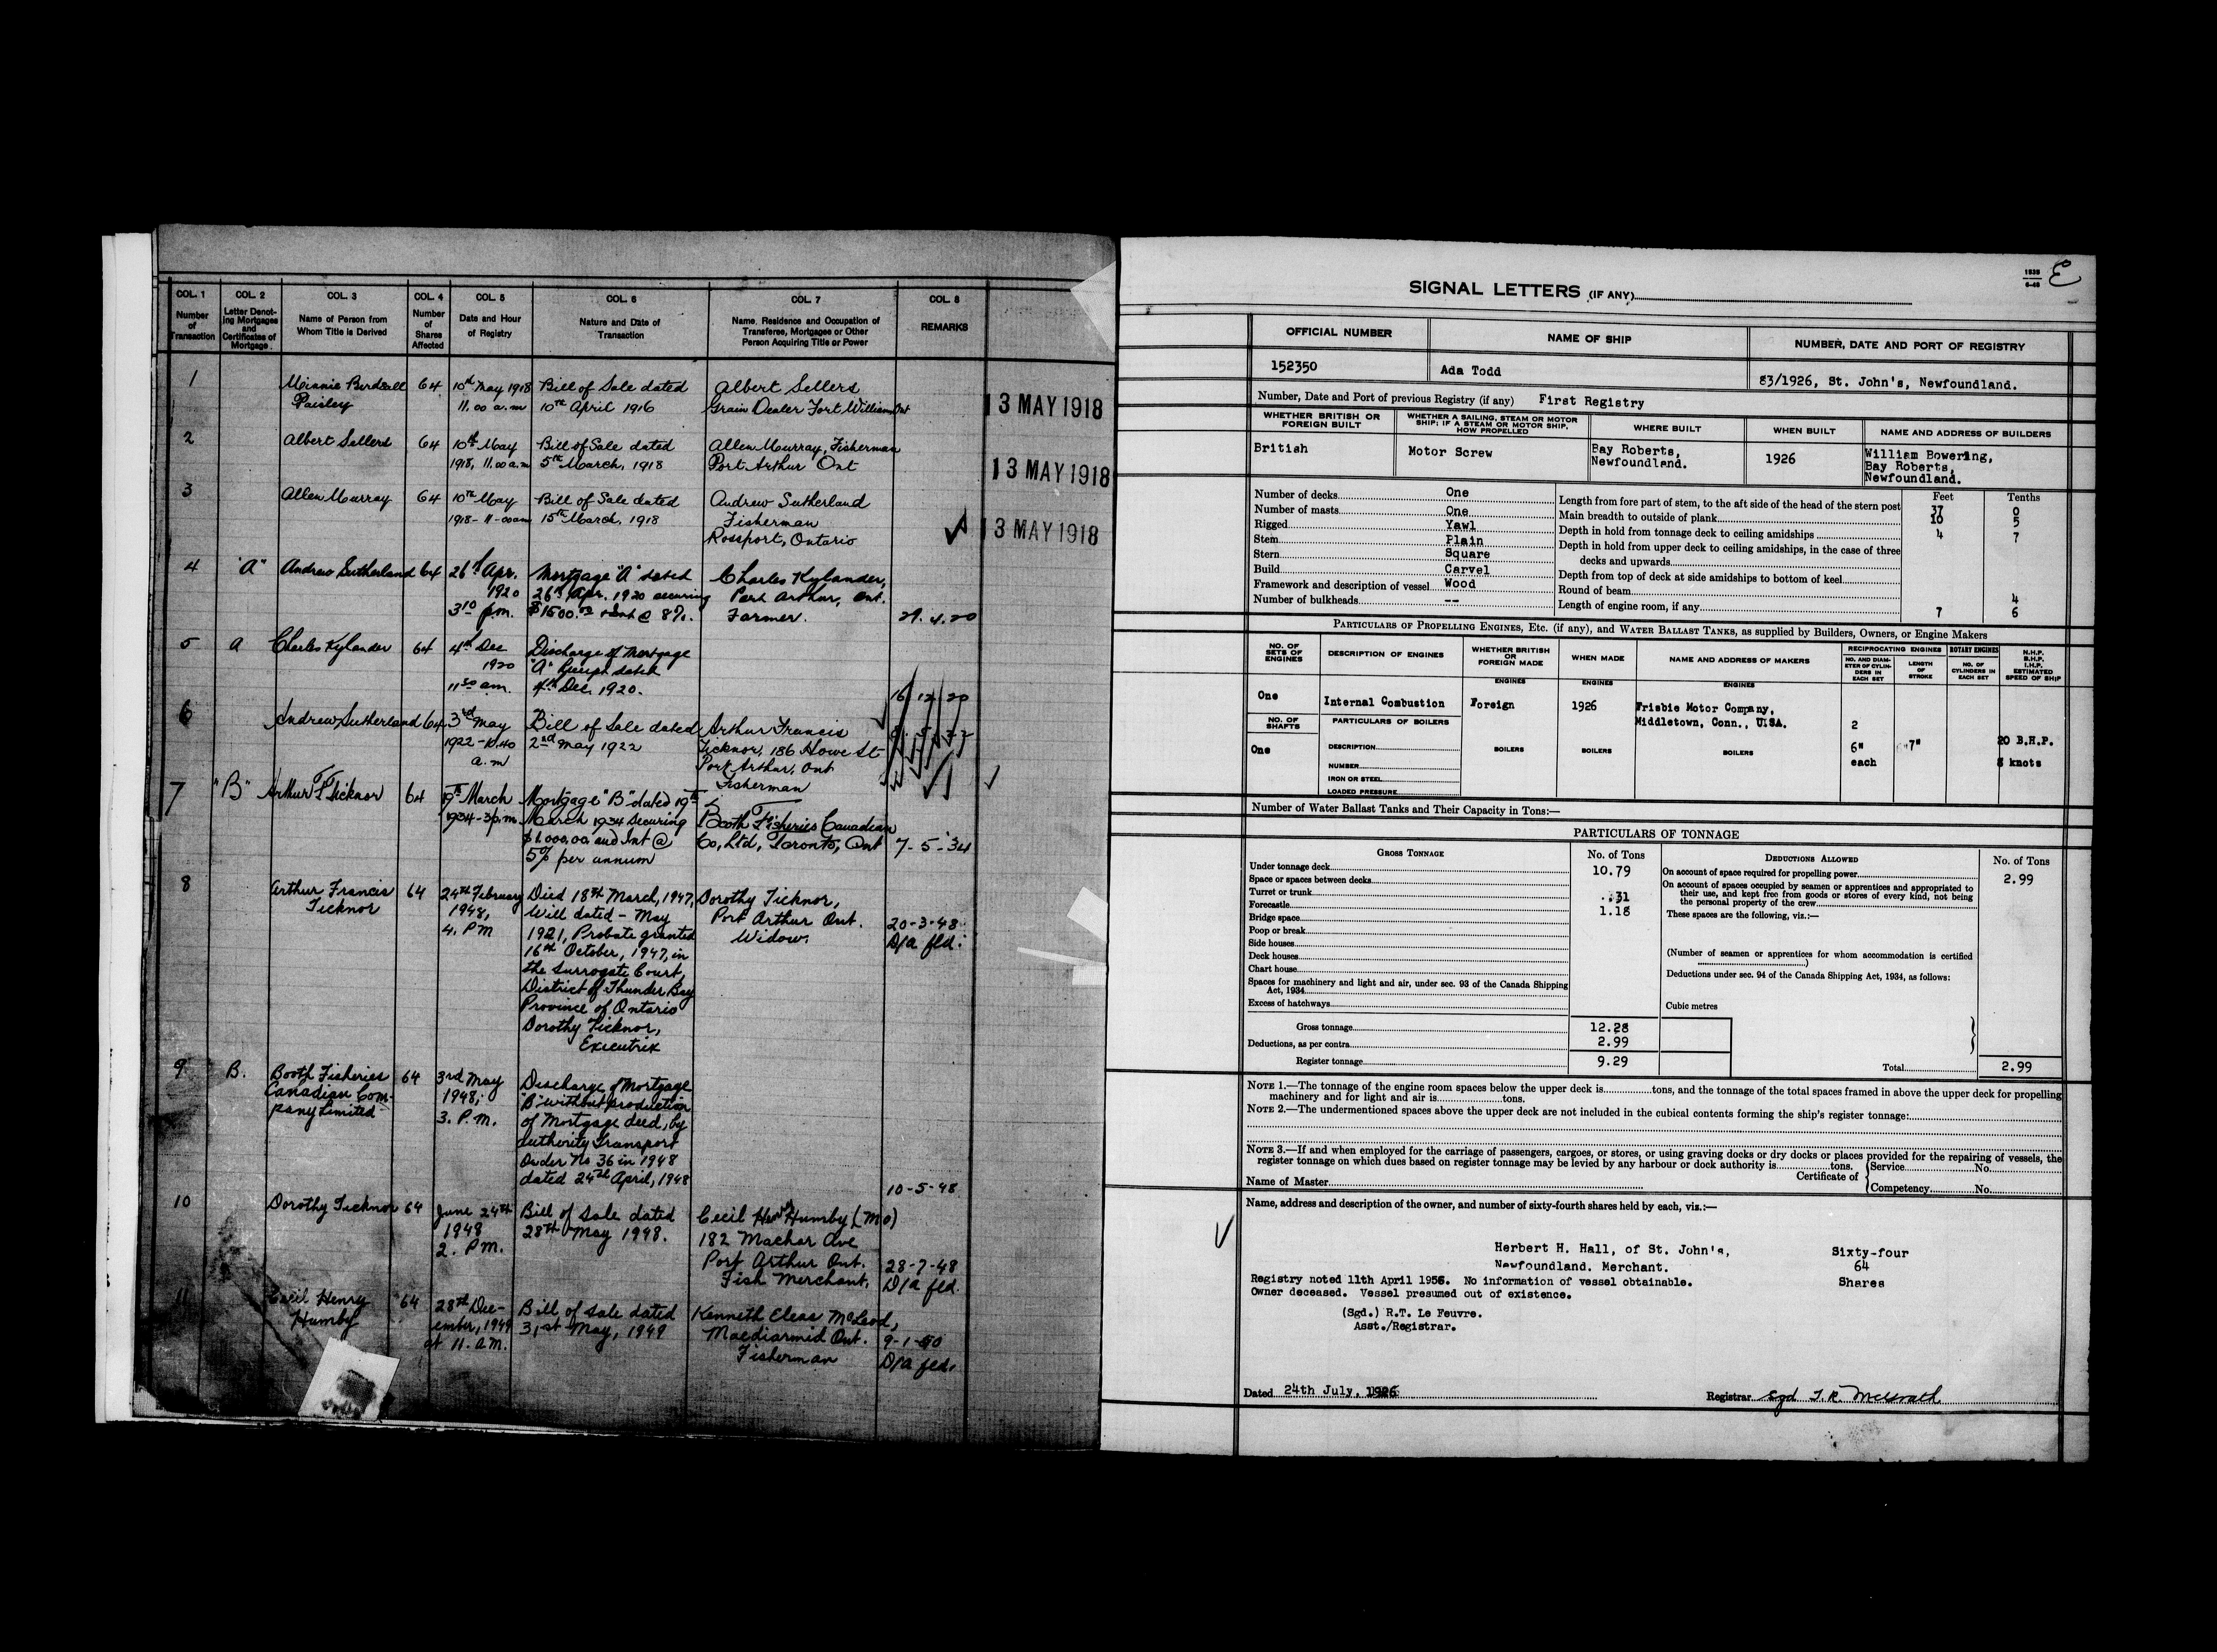 COL. 1
Number
of
Transaction
COL. 2
Letter Denot-
ing Mortgages
and
Certificates of
Mortgage
COL. 3
Name of Person from
Whom Title is Derived
COL. 4
Number
of
Shares
Affected
COL. 5
Date and Hour
of Registry
COL. 6
Nature and Date of
Transaction
COL. 7
Name, Residence and Occupation of
Transferee, Mortgagee or Other
Person Acquiring Title or Power
COL. 8
REMARKS
1
Minnie Birdsall
Paisley
64
10th May 1918
11.00 a.m
Bill of Sale dated
10th April 1916
Albert Sellers
Grain Dealer Fort William Ont
13 MAY 1918
2
Albert Sellers
64
10th May
1918, 11.00 a.m
Bill of Sale dated
5th March, 1918
Allen Murray, Fisherman
Port Arthur Ont
13 MAY 1918
3
Allen Murray
64
10th May
1918 - 11-00am
Bill of Sale dated
15th March, 1918
Andrew Sutherland
Fisherman
Rossport, Ontario
13 MAY 1918
4
"A"
Andrew Sutherland
64
26th Apr.
1920
3 10 p.m.
Mortgage "A" dated
26th Apr. 1920 securing
$1500.00 & Int @ 8%.
Charles Kylander,
Port Arthur, Ont.
Farmer.
29.4.20
5
A
Charles Kylander
64
4th Dec
1920
11 30 am.
Discharge of Mortgage
"A" Receipt dated
4th Dec. 1920.
16/12/20
6
Andrew Sutherland
64
3rd May
1922 - 10.40
a.m
Bill of Sale dated
2nd May 1922
Arthur Francis
Ticknor, 186 Howe St-
Port Arthur, Ont
Fisherman
7
"B"
Arthur F Ticknor
64
19th March
1934 - 3 p.m.
Mortgage "B" dated 19th
March 1934 securing
$1,000.00 and Int @
5% per annum
Booth Fisheries Canadian
Co, Ltd, Toronto, Ont
7-5-34
8
Arthur Francis
Ticknor
64
24th February
1948,
4. P.M
Died 18th March, 1947,
Will dated - May
1921, Probate granted
16th October, 1947, in
the Surrogate Court,
District of Thunder Bay
Province of Ontario
Dorothy Ticknor,
Executrix
Dorothy Ticknor,
Port Arthur Ont.
Widow.
20-3-48
D/a fld.
9
B.
Booth Fisheries
Canadian Com-
pany Limited
64
3rd May
1948,
3. P.M.
Discharge of Mortgage
"B" without production
of Mortgage deed, by
authority Transport
Order No 36 in 1948
dated 24th April, 1948
10-5-48
10
Dorothy Ticknor
64
June 24th
1948
2. P.M.
Bill of Sale dated
28th May 1948.
Cecil Henry Humby (MO)
182 Machar Ave
Port Arthur Ont.
Fish Merchant.
28-7-48
D/a fld
11
Cecil Henry
Humby
64
28th Dec-
ember, 1949
at 11. A.M.
Bill of Sale dated
31st May, 1949
Kenneth Eleas McLeod,
Macdiarmid Ont.
Fisherman
9-1-50
D/a fld.
1939
6-49
E
SIGNAL LETTERS (IF ANY)
OFFICIAL NUMBER
NAME OF SHIP
NUMBER, DATE AND PORT OF REGISTRY
152350
Ada Todd
83/1926, St. John's, Newfoundland.
Number, Date and Port of previous Registry (if any) First Registry
WHETHER BRITISH OR
FOREIGN BUILT
WHETHER A SAILING, STEAM OR MOTOR
SHIP; IF A STEAM OR MOTOR SHIP,
HOW PROPELLED
WHERE BUILT
WHEN BUILT
NAME AND ADDRESS OF BUILDERS
British
Motor Screw
Bay Roberts,
Newfoundland.
1926
William Bowering,
Bay Roberts,
Newfoundland.
Number of decks One
Number of masts One
Rigged Yawl
Stem Plain
Stern Square
Build Carvel
Framework and description of vessel Wood
Number of bulkheads --
Feet Tenths
Length from fore part of stem, to the aft side of the head of the stern post 37 0
Main breadth to outside of plank 10 5
Depth in hold from tonnage deck to ceiling amidships 4 7
Depth in hold from upper deck to ceiling amidships, in the case of three
decks and upwards
Depth from top of deck at side amidships to bottom of keel
Round of beam 4
Length of engine room, if any 7 6
PARTICULARS OF PROPELLING ENGINES, ETC. (if any), and WATER BALLAST TANKS, as supplied by Builders, Owners, or Engine Makers
NO. OF
SETS OF
ENGINES
DESCRIPTION OF ENGINES
WHETHER BRITISH
OR
FOREIGN MADE
WHEN MADE
NAME AND ADDRESS OF MAKERS
RECIPROCATING ENGINES
NO. AND DIAM-
ETER OF CYLIN-
DERS IN
EACH SET
LENGTH
OF
STROKE
ROTARY ENGINES
NO. OF
CYLINDERS IN
EACH SET
N.H.P.
B.H.P.
I.H.P.
ESTIMATED
SPEED OF SHIP
ENGINES
ENGINES
ENGINES
One
Internal Combustion
Foreign
1926
Frisbie Motor Company,
Middletown, Conn., U.SA.
2
NO. OF
SHAFTS
PARTICULARS OF BOILERS
One
DESCRIPTION
NUMBER
IRON OR STEEL
LOADED PRESSURE
BOILERS
BOILERS
BOILERS
6"
each
7"
20 B.H.P.
knots
Number of Water Ballast Tanks and Their Capacity in Tons:—
PARTICULARS OF TONNAGE
GROSS TONNAGE
No. of Tons
DEDUCTIONS ALLOWED
No. of Tons
Under tonnage deck 10.79
Space or spaces between decks
Turret or trunk .31
Forecastle 1.18
Bridge space
Poop or break
Side houses
Deck houses
Chart house
Spaces for machinery and light and air, under sec. 93 of the Canada Shipping
Act, 1934
Excess of hatchways
Gross tonnage 12.28
Deductions, as per contra 2.99
Register tonnage 9.29
On account of space required for propelling power 2.99
On account of spaces occupied by seamen or apprentices and appropriated to
their use, and kept free from goods or stores of every kind, not being
the personal property of the crew
These spaces are the following, viz.:—
(Number of seamen or apprentices for whom accommodation is certified
)
Deductions under sec. 94 of the Canada Shipping Act, 1934, as follows:
Cubic metres
Total 2.99
NOTE 1.—The tonnage of the engine room spaces below the upper deck is tons, and the tonnage of the total spaces framed in above the upper deck for propelling
machinery and for light and air is tons.
NOTE 2.—The undermentioned spaces above the upper deck are not included in the cubical contents forming the ship's register tonnage:
NOTE 3.—If and when employed for the carriage of passengers, cargoes, or stores, or using graving docks or dry docks or places provided for the repairing of vessels, the
register tonnage on which dues based on register tonnage may be levied by any harbour or dock authority is tons.
Name of Master
Certificate of
Service No.
Competency No.
Name, address and description of the owner, and number of sixty-fourth shares held by each, viz.:—
Herbert H. Hall, of St. John's,
Newfoundland. Merchant.
Sixty-four
64
Shares
Registry noted 11th April 1956. No information of vessel obtainable.
Owner deceased. Vessel presumed out of existence.
(Sgd.) R.T. Le Feuvre.
Asst./Registrar.
Dated 24th July, 1926
Registrar Sgd T.R. McGrath